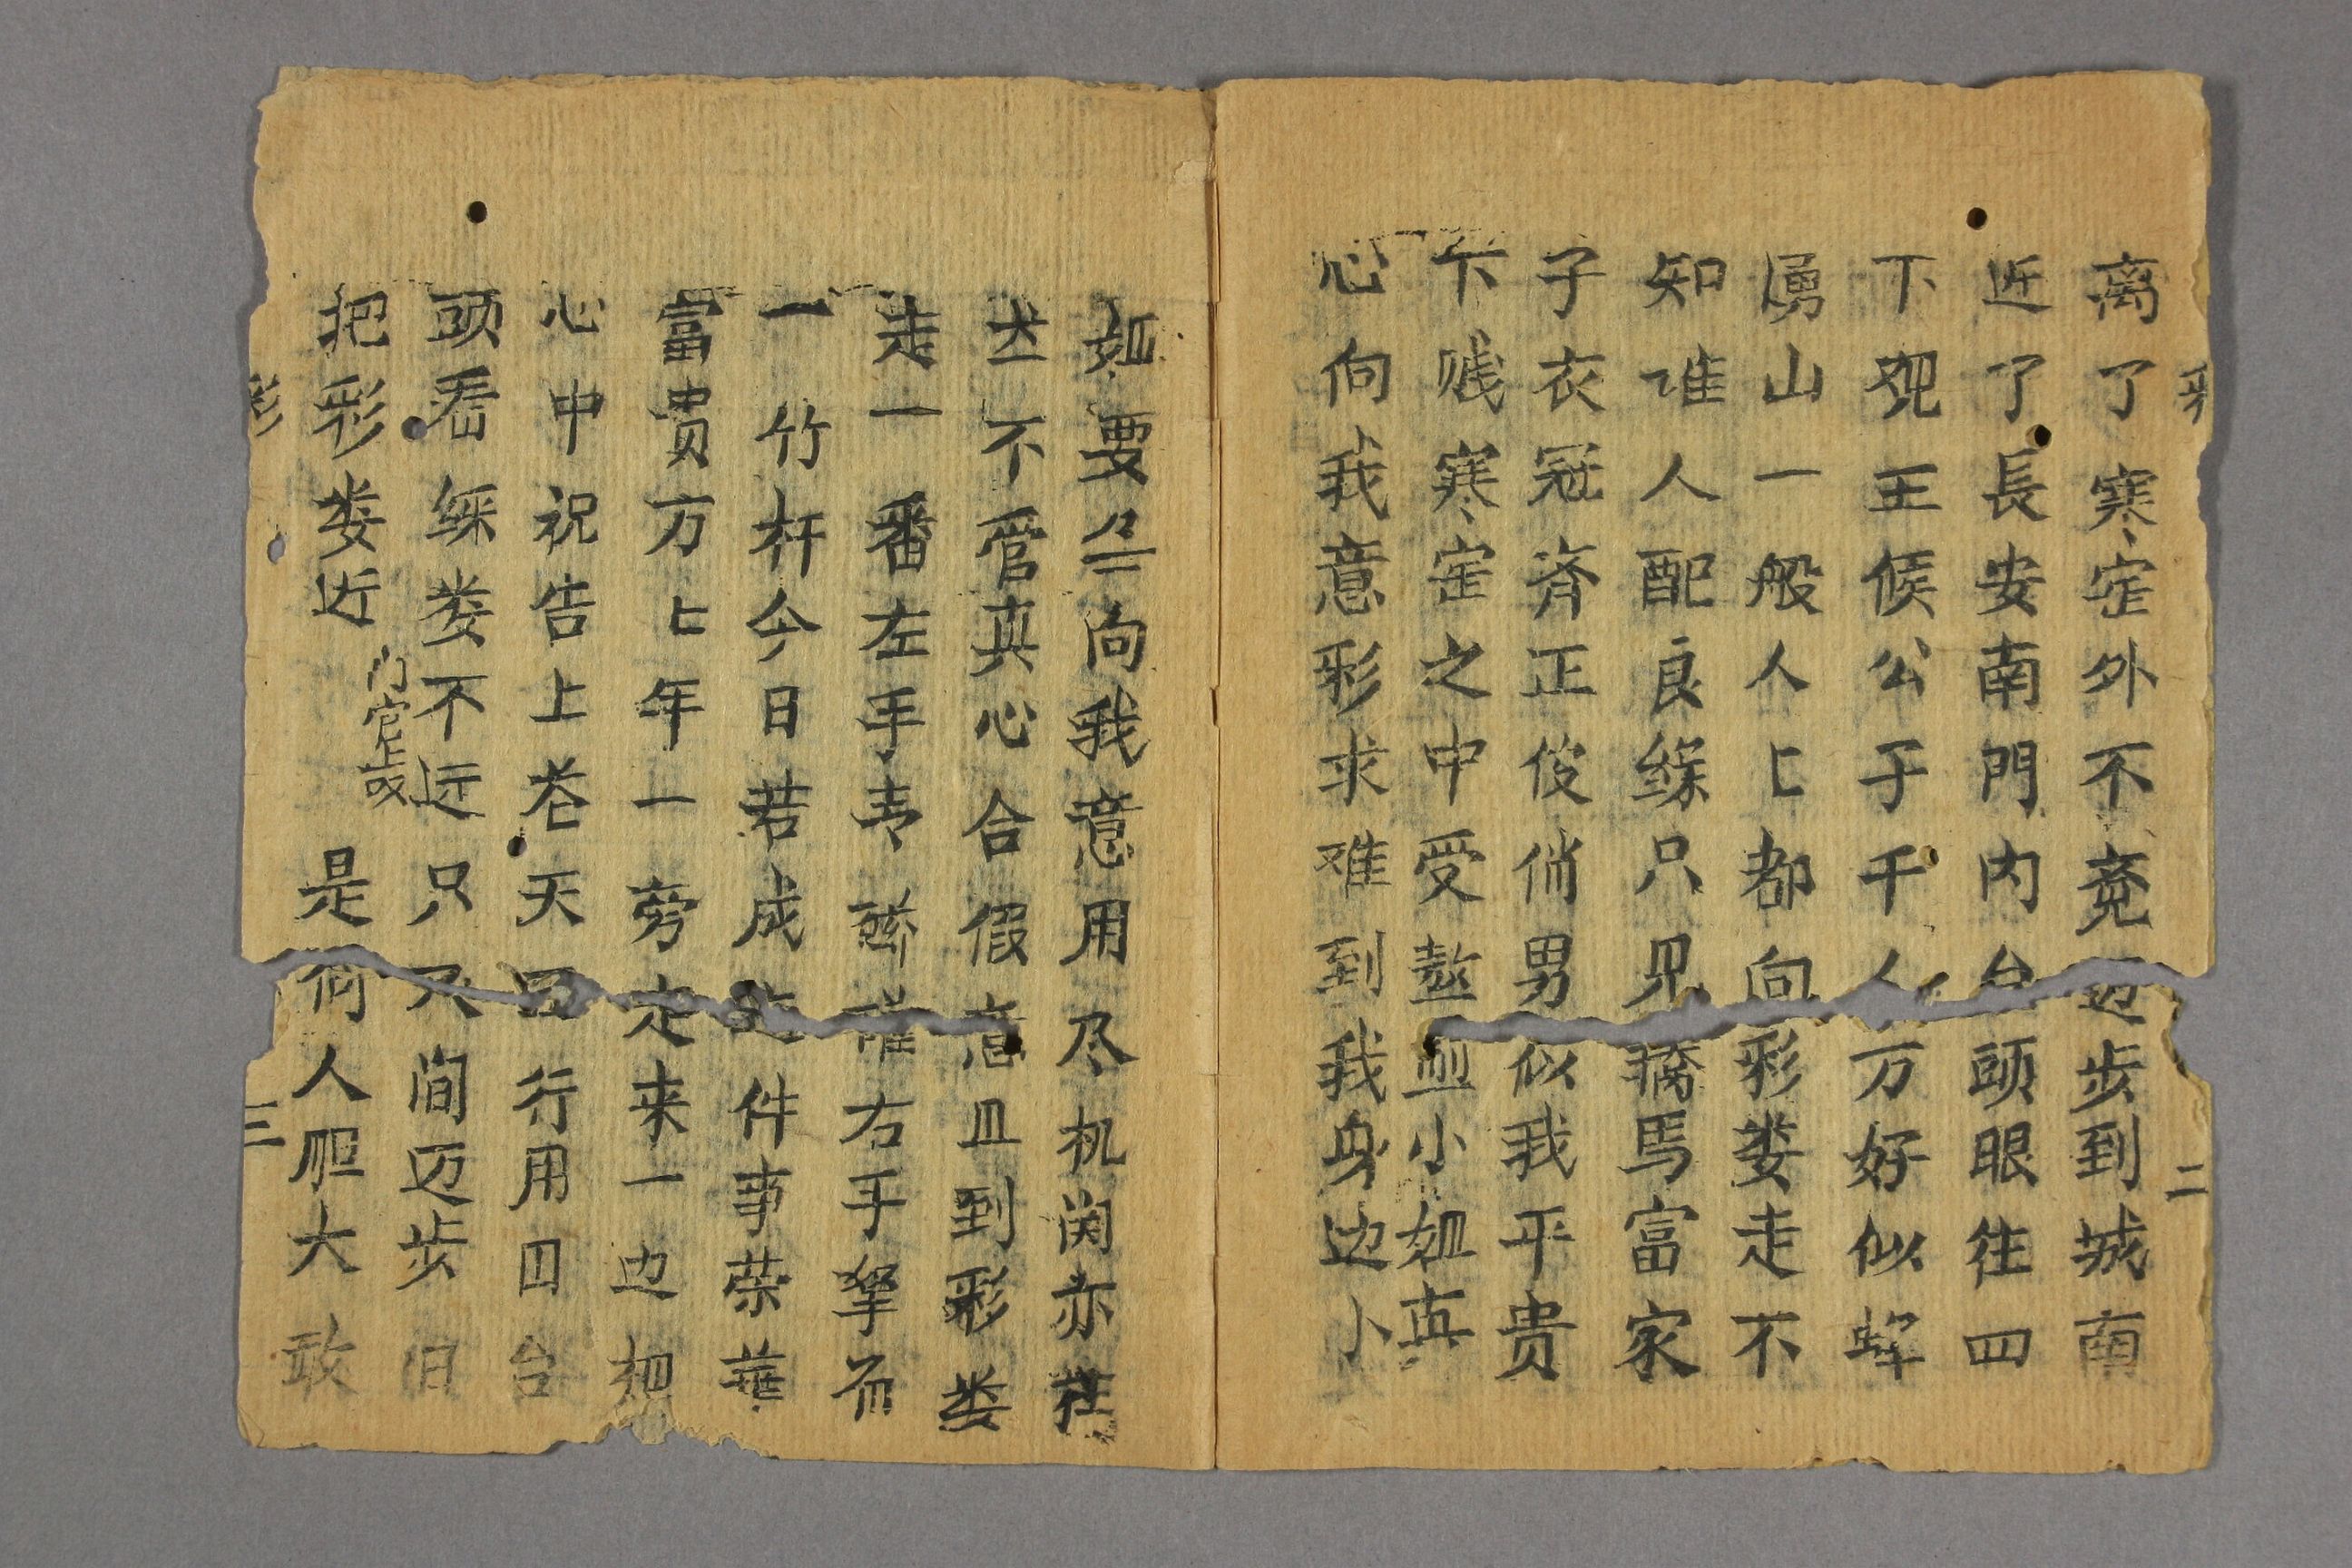 离了寒窑外不竟迈步到城南
近了長安南門内台頭眼往四
下观王候公子千人万好似
山一般人匕都向彩娄走不
知谁人配良缘只见㺐馬富家
子衣冠齐正俊俏男似我平贵
下贱寒窑之中受熬煎小姐真
心向我意彩求难到我身边小
姐要仝向我意用尽机関亦
不管真心合假意且到彩娄
走一番左手青 右手拿而
一竹杆今日若成此件事荣華
富贵万匕年一旁走来一边想
心中祝告上苍天四行用目台
頭看綵娄不远只只间迈步
把彩娄近
门官上或
是何人胆大敢
彩
二
彩
三